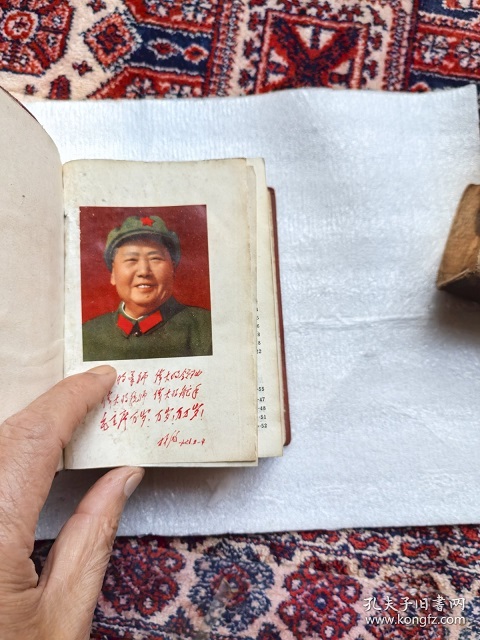 导师 伟大的领袖
伟大的统帅 伟大的舵手
毛主席万岁!万岁!万万岁!
林彪
8
9
12
-55
-47
-51
-52
孔夫子旧书网
www.kongfz.com